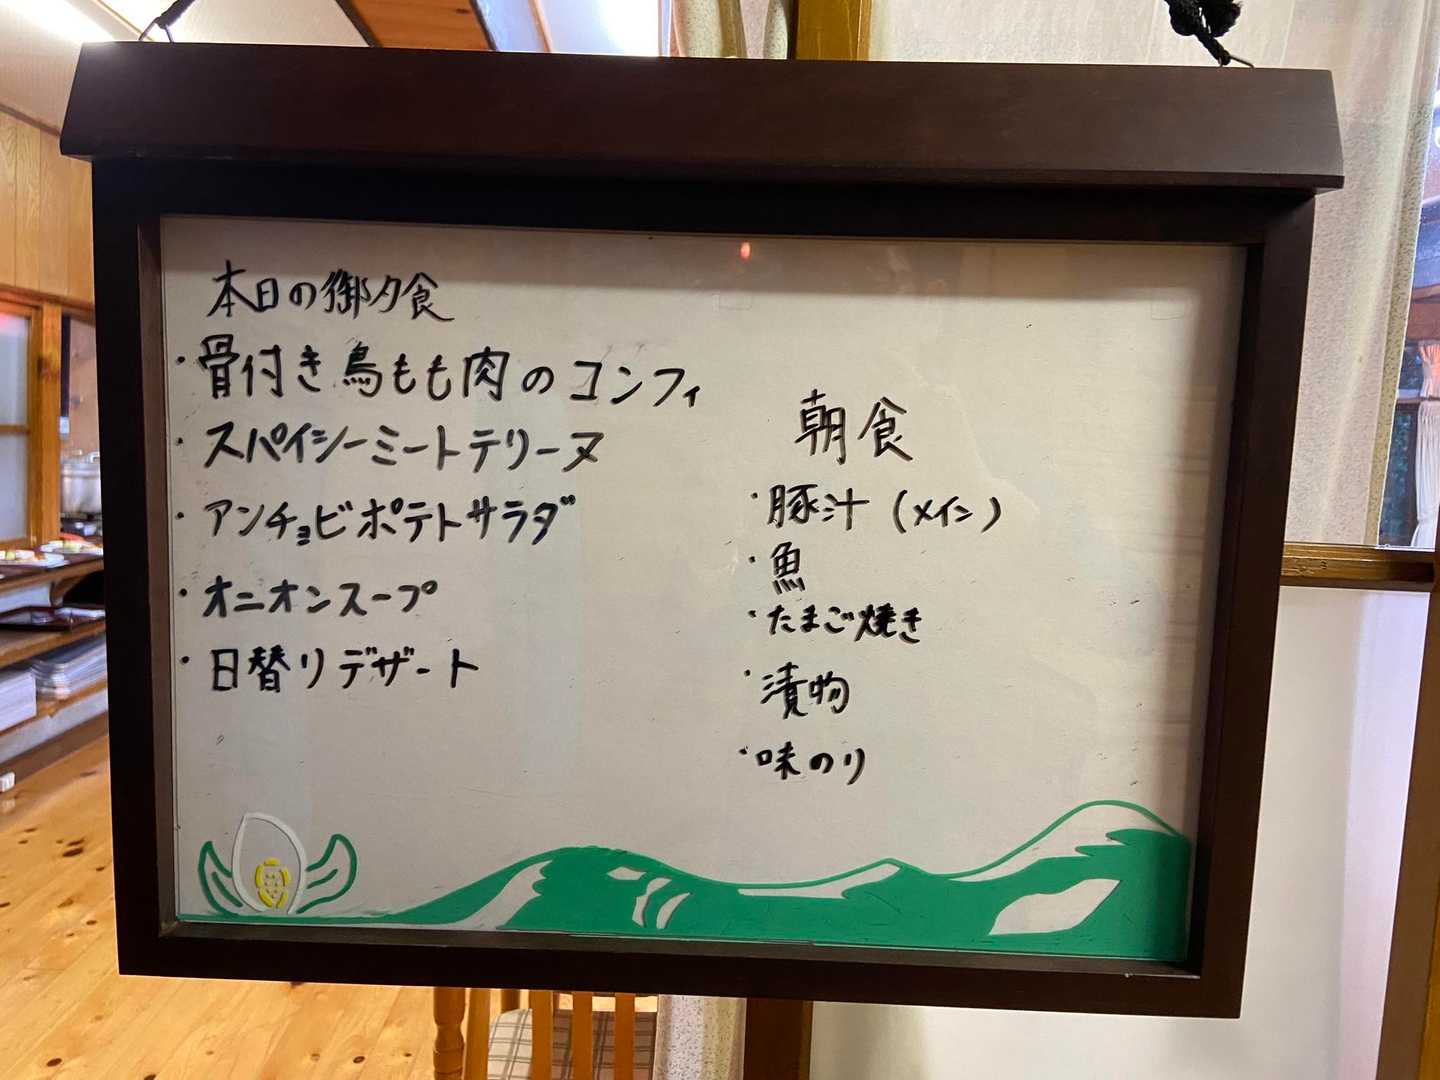 本日の御夕食
・骨付き鳥もも肉のコンフィ
・スパイシーミートテリーヌ
・アンチョビポテトサラダ
・オニオンスープ
・日替りデザート
朝食
・豚汁（メイン）
・魚
・たまご焼き
・漬物
・味のり